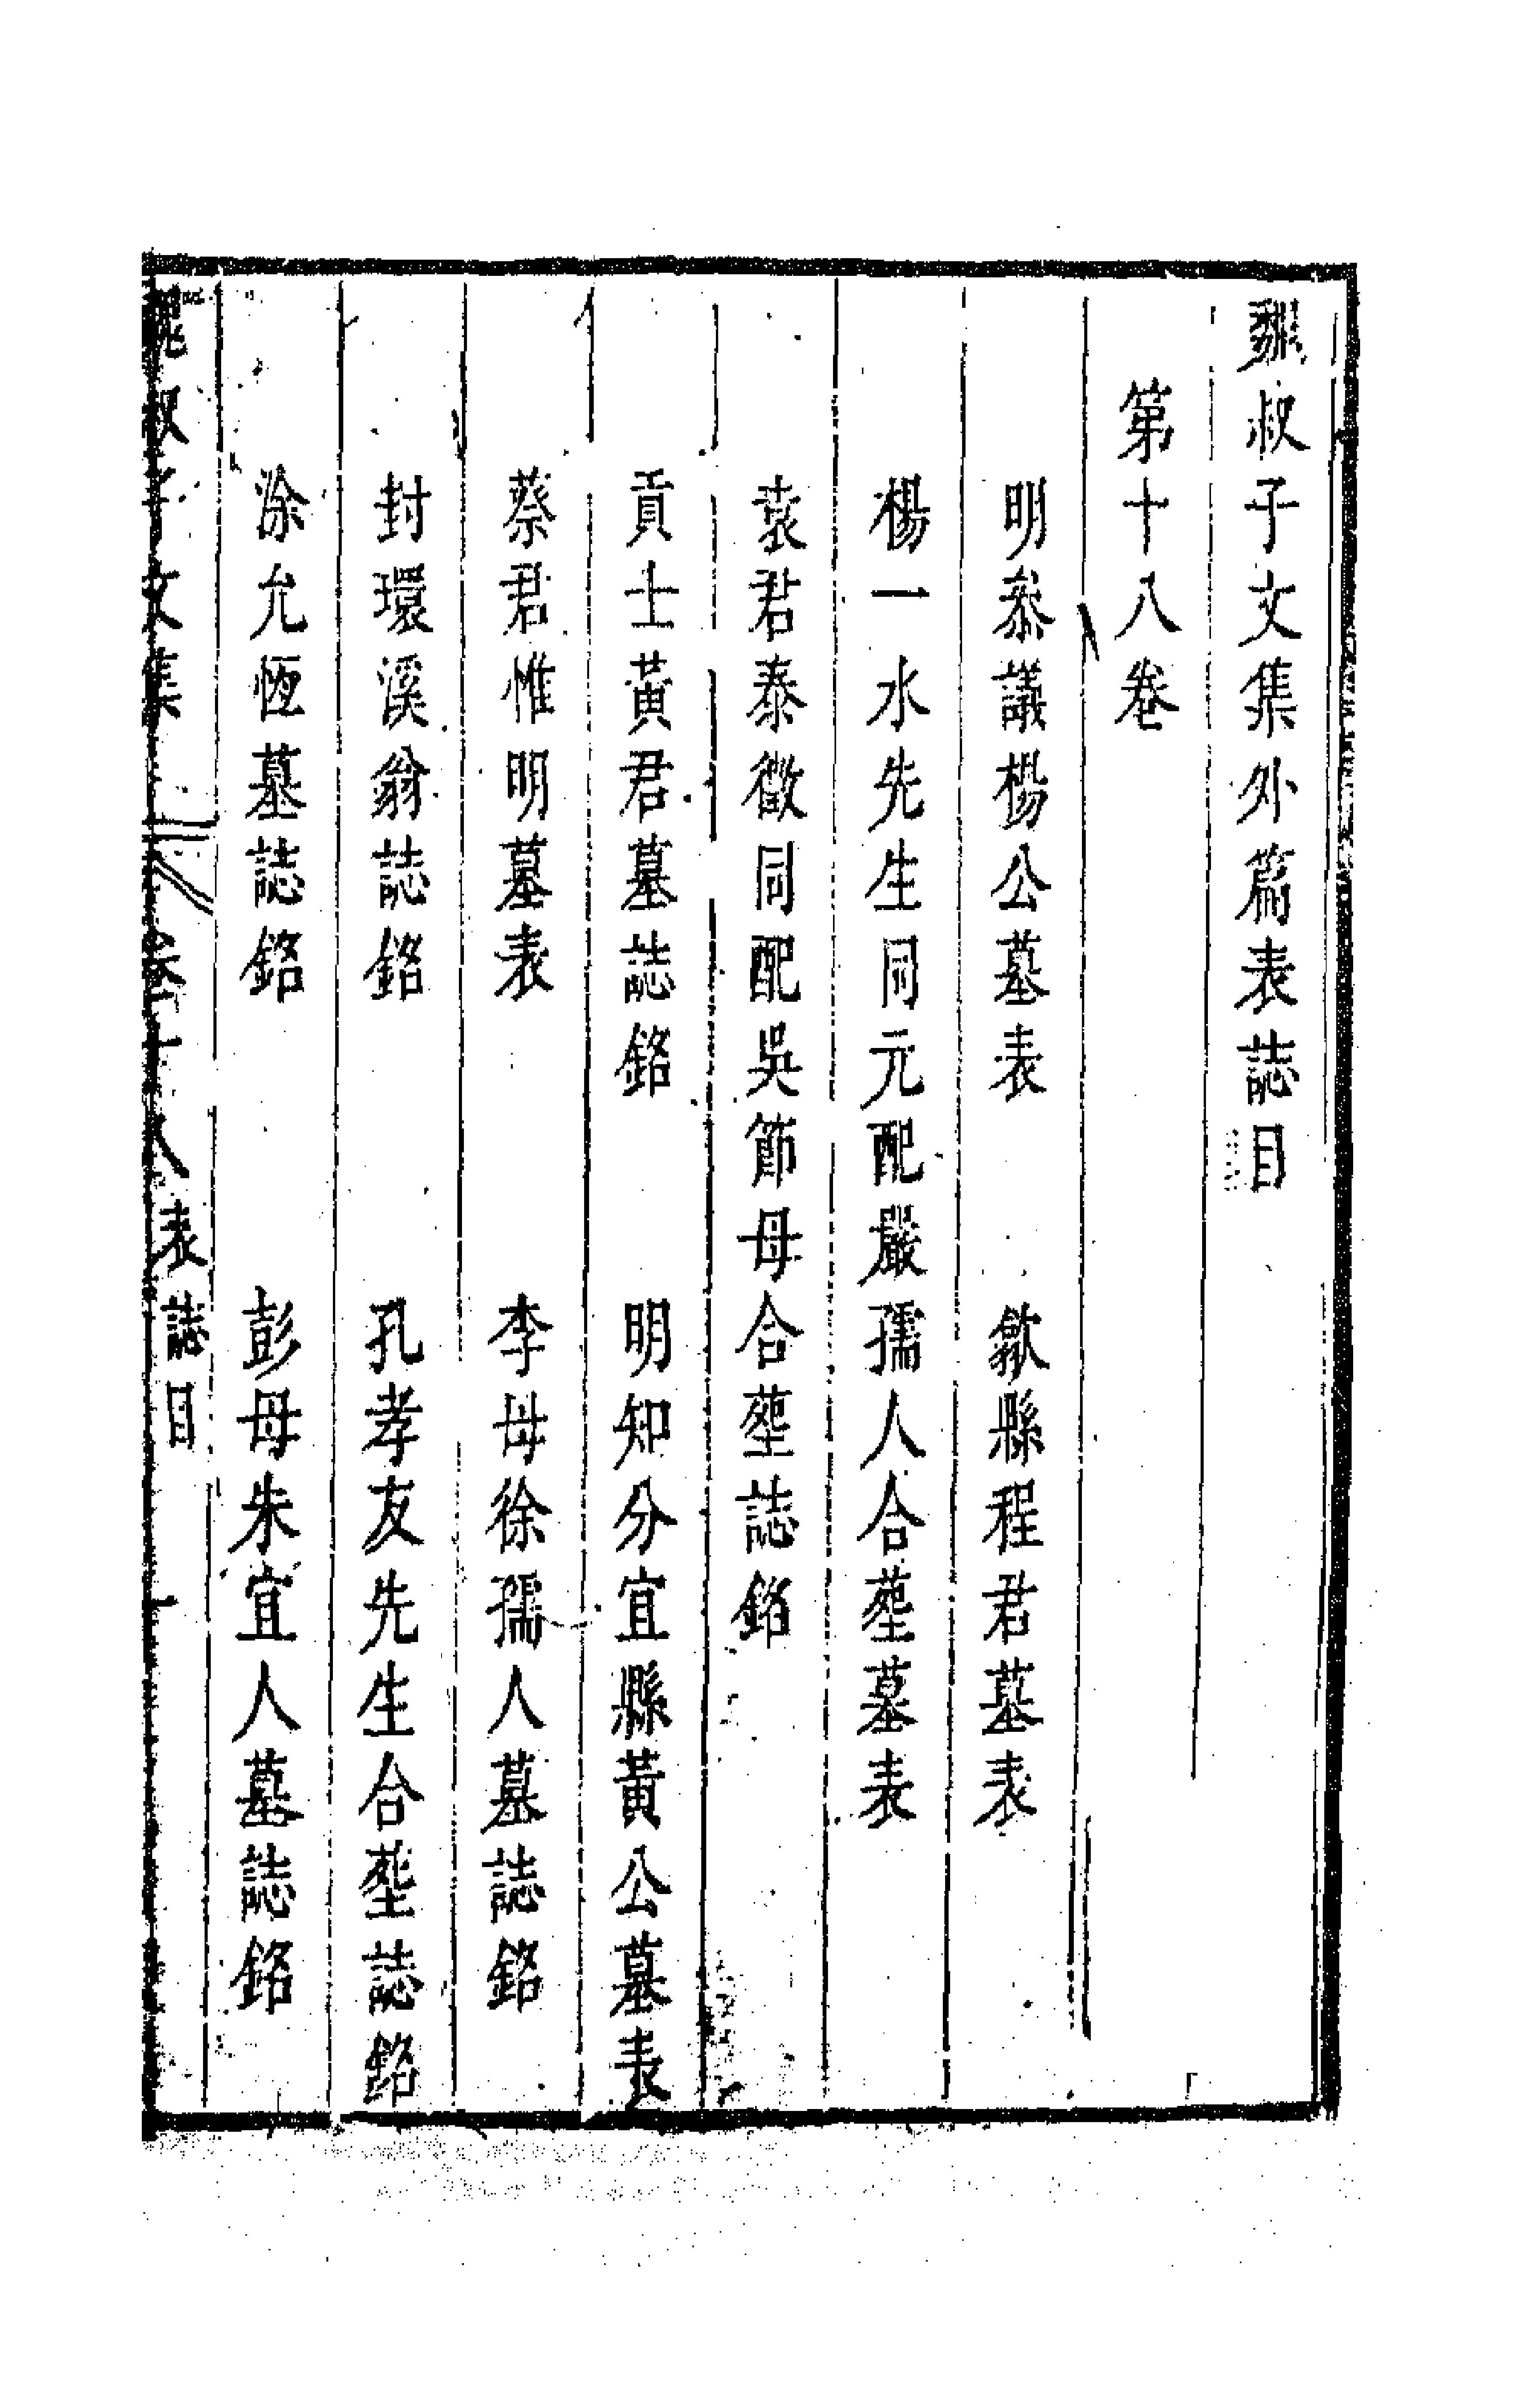 魏叔子文集外篇表誌目
第十八卷
明叅議楊公墓表　歙縣程君墓表
楊一水先生同元配嚴孺人合塟墓表
袁君泰徵同配吳節母合塟誌銘
貢士黃君墓誌銘　明知分宜縣黃公墓表
蔡君惟明墓表　李母徐孺人墓誌銘
封環溪翁誌銘　孔孝友先生合塟誌銘
涂允恆墓誌銘　彭母朱宜人墓誌銘
魏叔子文集　卷十八表誌目　一